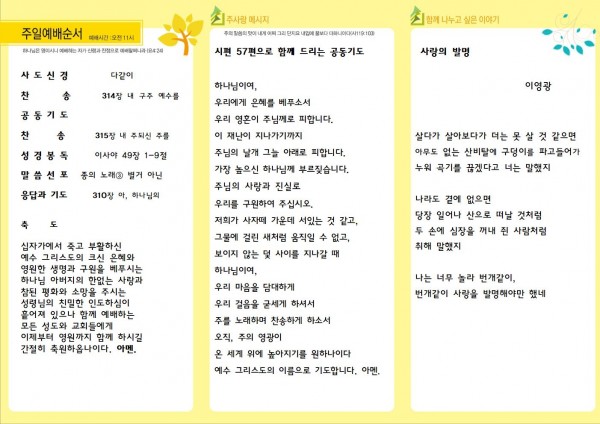 주일예배순서 예배시간 : 오전 11시
하나님은 영이시니 예배하는 자가 신령과 진정으로 예배할찌니라 (요4:24)
사 도 신 경 다같이
찬 송 314장 내 구주 예수를
공 동 기 도
찬 송 315장 내 주되신 주를
성 경 봉 독 이사야 49장 1-9절
말 씀 선 포 종의 노래③ 별거 아닌
응답과 기도 310장 아, 하나님의
축 도
십자가에서 죽고 부활하신
예수 그리스도의 크신 은혜와
영원한 생명과 구원을 베푸시는
하나님 아버지의 한없는 사랑과
참된 평화와 소망을 주시는
성령님의 친밀한 인도하심이
흩어져 있으나 함께 예배하는
모든 성도와 교회들에게
이제부터 영원까지 함께 하시길
간절히 축원하옵나이다. 아멘.
주사랑 메시지
주의 말씀의 맛이 내게 어찌 그리 단지요 내입에 꿀보다 더하니이다(시119:103)
시편 57편으로 함께 드리는 공동기도
하나님이여,
우리에게 은혜를 베푸소서
우리 영혼이 주님께로 피합니다.
이 재난이 지나가기까지
주님의 날개 그늘 아래로 피합니다.
가장 높으신 하나님께 부르짖습니다.
주님의 사랑과 진실로
우리를 구원하여 주십시오.
저희가 사자떼 가운데 서있는 것 같고,
그물에 걸린 새처럼 움직일 수 없고,
보이지 않는 덫 사이를 지나갈 때
하나님이여,
우리 마음을 담대하게
우리 걸음을 굳세게 하셔서
주를 노래하며 찬송하게 하소서
오직, 주의 영광이
온 세계 위에 높아지기를 원하나이다
예수 그리스도의 이름으로 기도합니다. 아멘.
함께 나누고 싶은 이야기
사랑의 발명
이영광
살다가 살아보다가 더는 못 살 것 같으면
아무도 없는 산비탈에 구덩이를 파고들어가
누워 곡기를 끊겠다고 너는 말했지
나라도 곁에 없으면
당장 일어나 산으로 떠날 것처럼
두 손에 심장을 꺼내 쥔 사람처럼
취해 말했지
나는 너무 놀라 번개같이,
번개같이 사랑을 발명해야만 했네